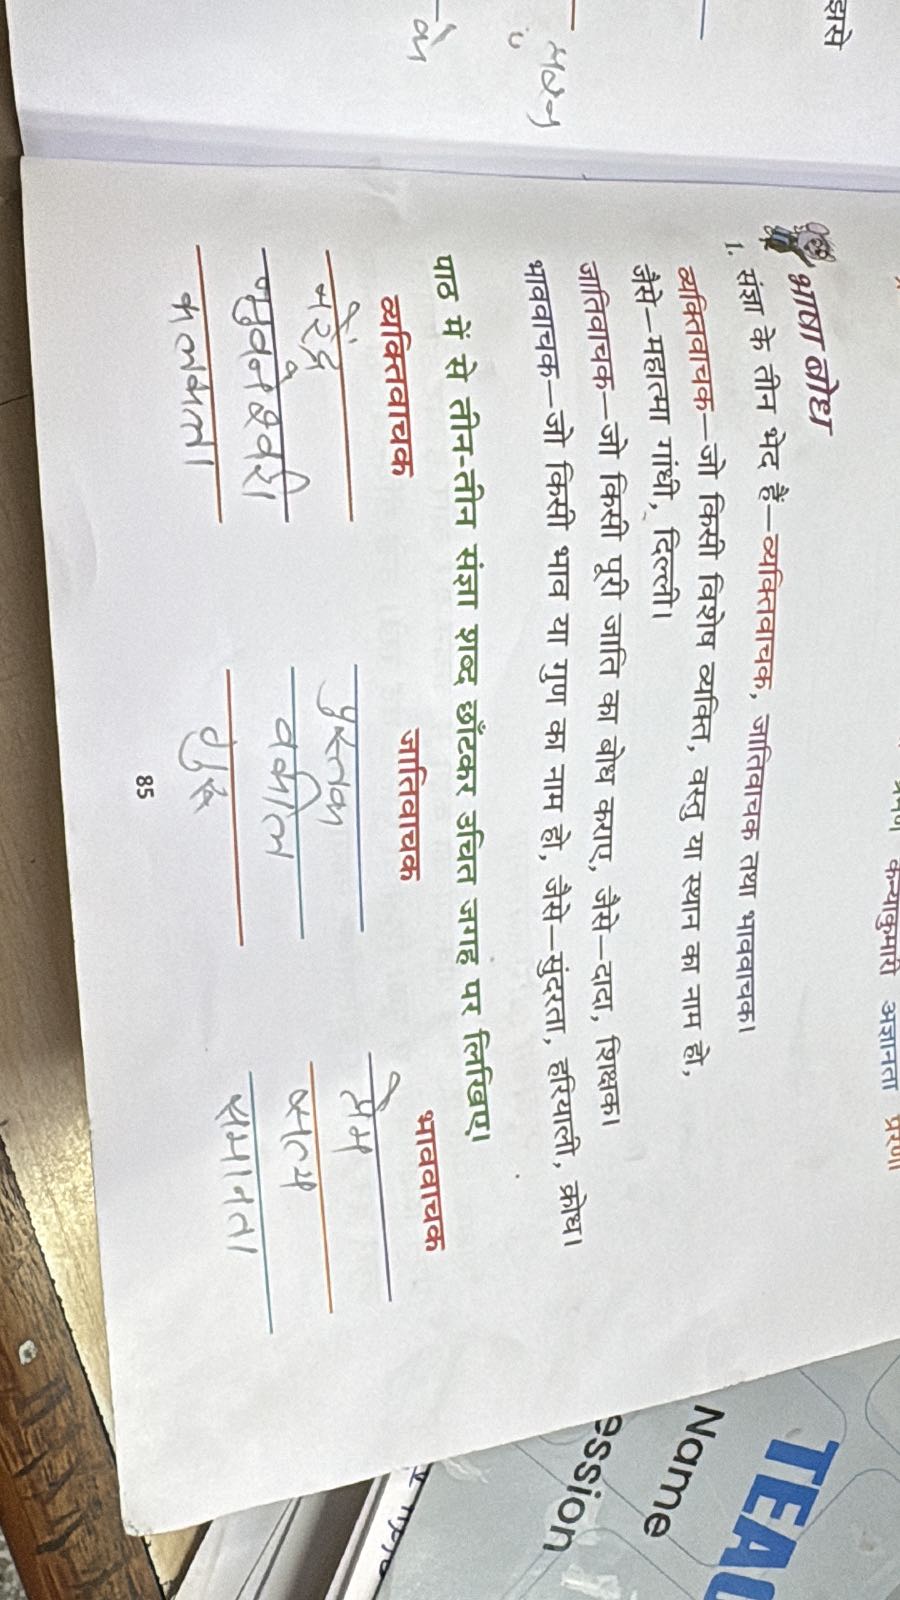 ज्ञासे
मरन
कन्याकुमारी अज्ञानता प्रेरणा
भाषा बोध
1. संज्ञा के तीन भेद हैं—व्यक्तिवाचक, जातिवाचक तथा भाववाचक।
व्यक्तिवाचक—जो किसी विशेष व्यक्ति, वस्तु या स्थान का नाम हो,
जैसे—महात्मा गांधी, दिल्ली।
जातिवाचक—जो किसी पूरी जाति का बोध कराए, जैसे—दादा, शिक्षक।
भाववाचक—जो किसी भाव या गुण का नाम हो, जैसे—सुंदरता, हरियाली, क्रोध।
पाठ में से तीन-तीन संज्ञा शब्द छाँटकर उचित जगह पर लिखिए।
व्यक्तिवाचक जातिवाचक भाववाचक
नरेंद्र पुस्तक प्रेम
भुवनेश्वरी वकील सत्य
कलकत्ता गुरु समानता
85
TEA
Name
ession